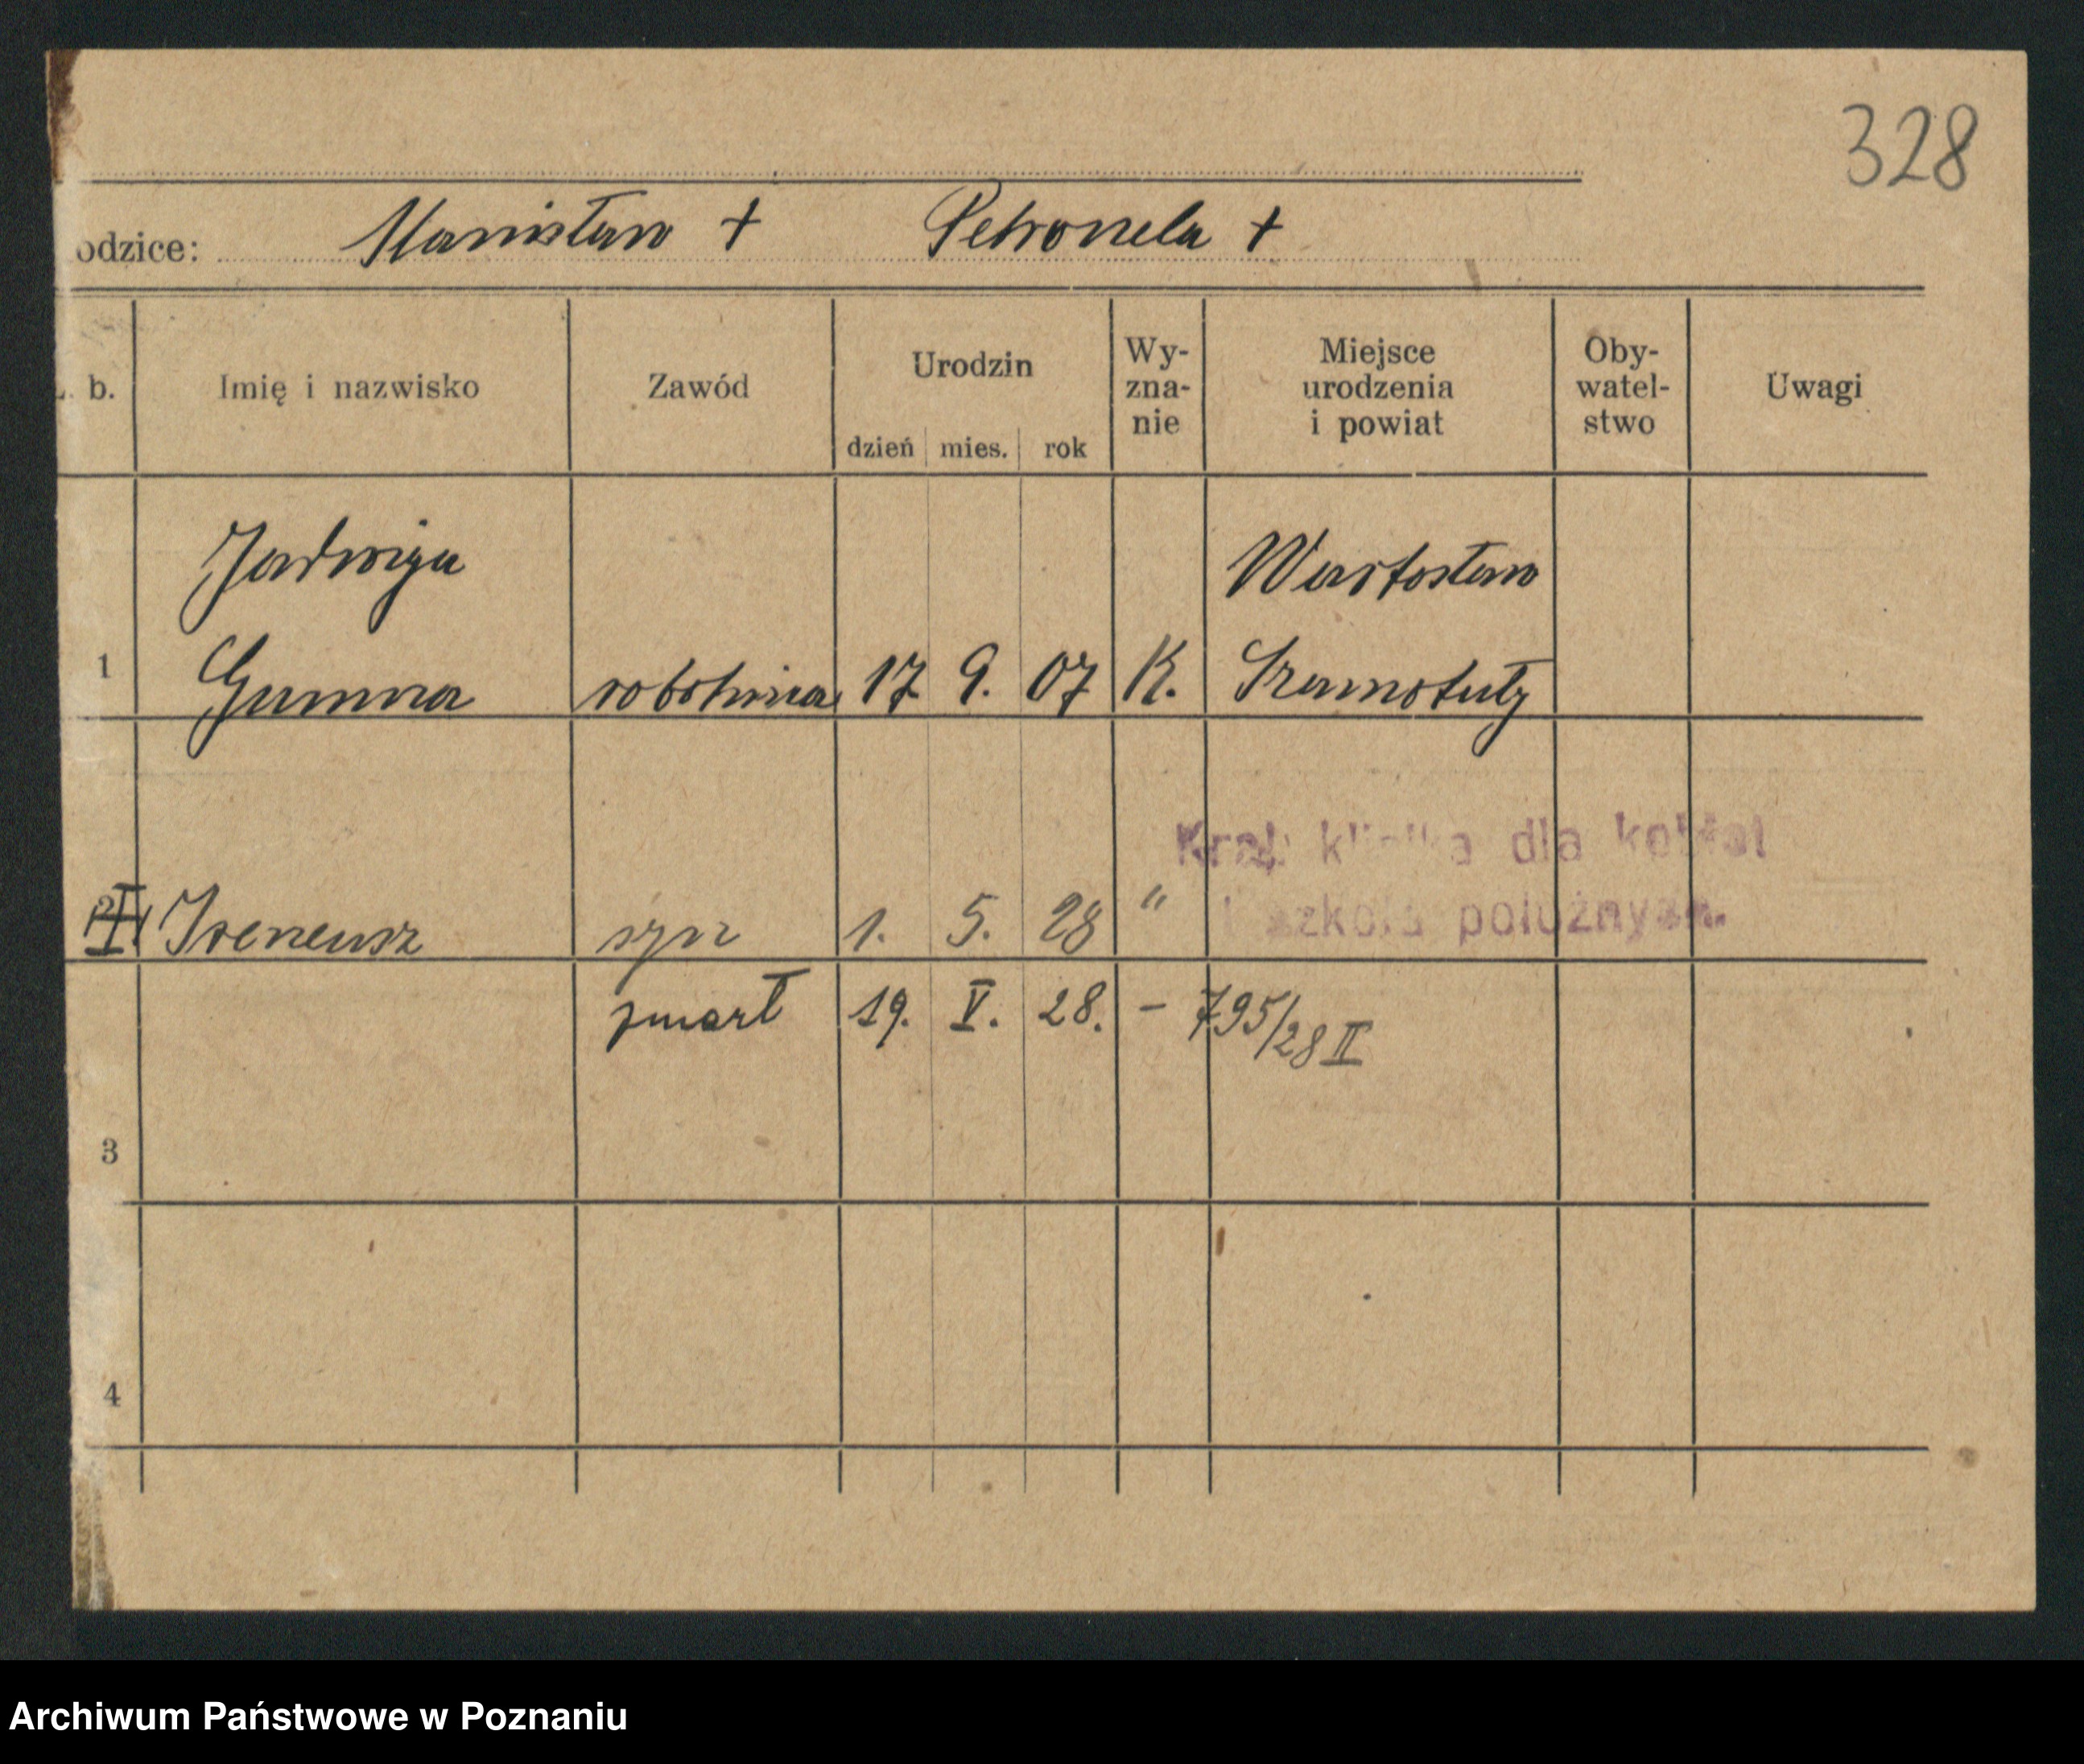 328
odzice: Stanisław + Petronela +
b. Imię i nazwisko Zawód Urodzin dzień mies. rok Wy-zna-nie Miejsce urodzenia i powiat Oby-watel-stwo Uwagi
Jadwiga Wartosław
1 Gumna robotnica 17 9. 07 K. Szamotuły
Kraj. klinika dla kobiet
Ireneusz syn 1. 5. 28 "
i szkoła położnych.
zmarł 19. V. 28. - 795/28 II
3
4
Archiwum Państwowe w Poznaniu